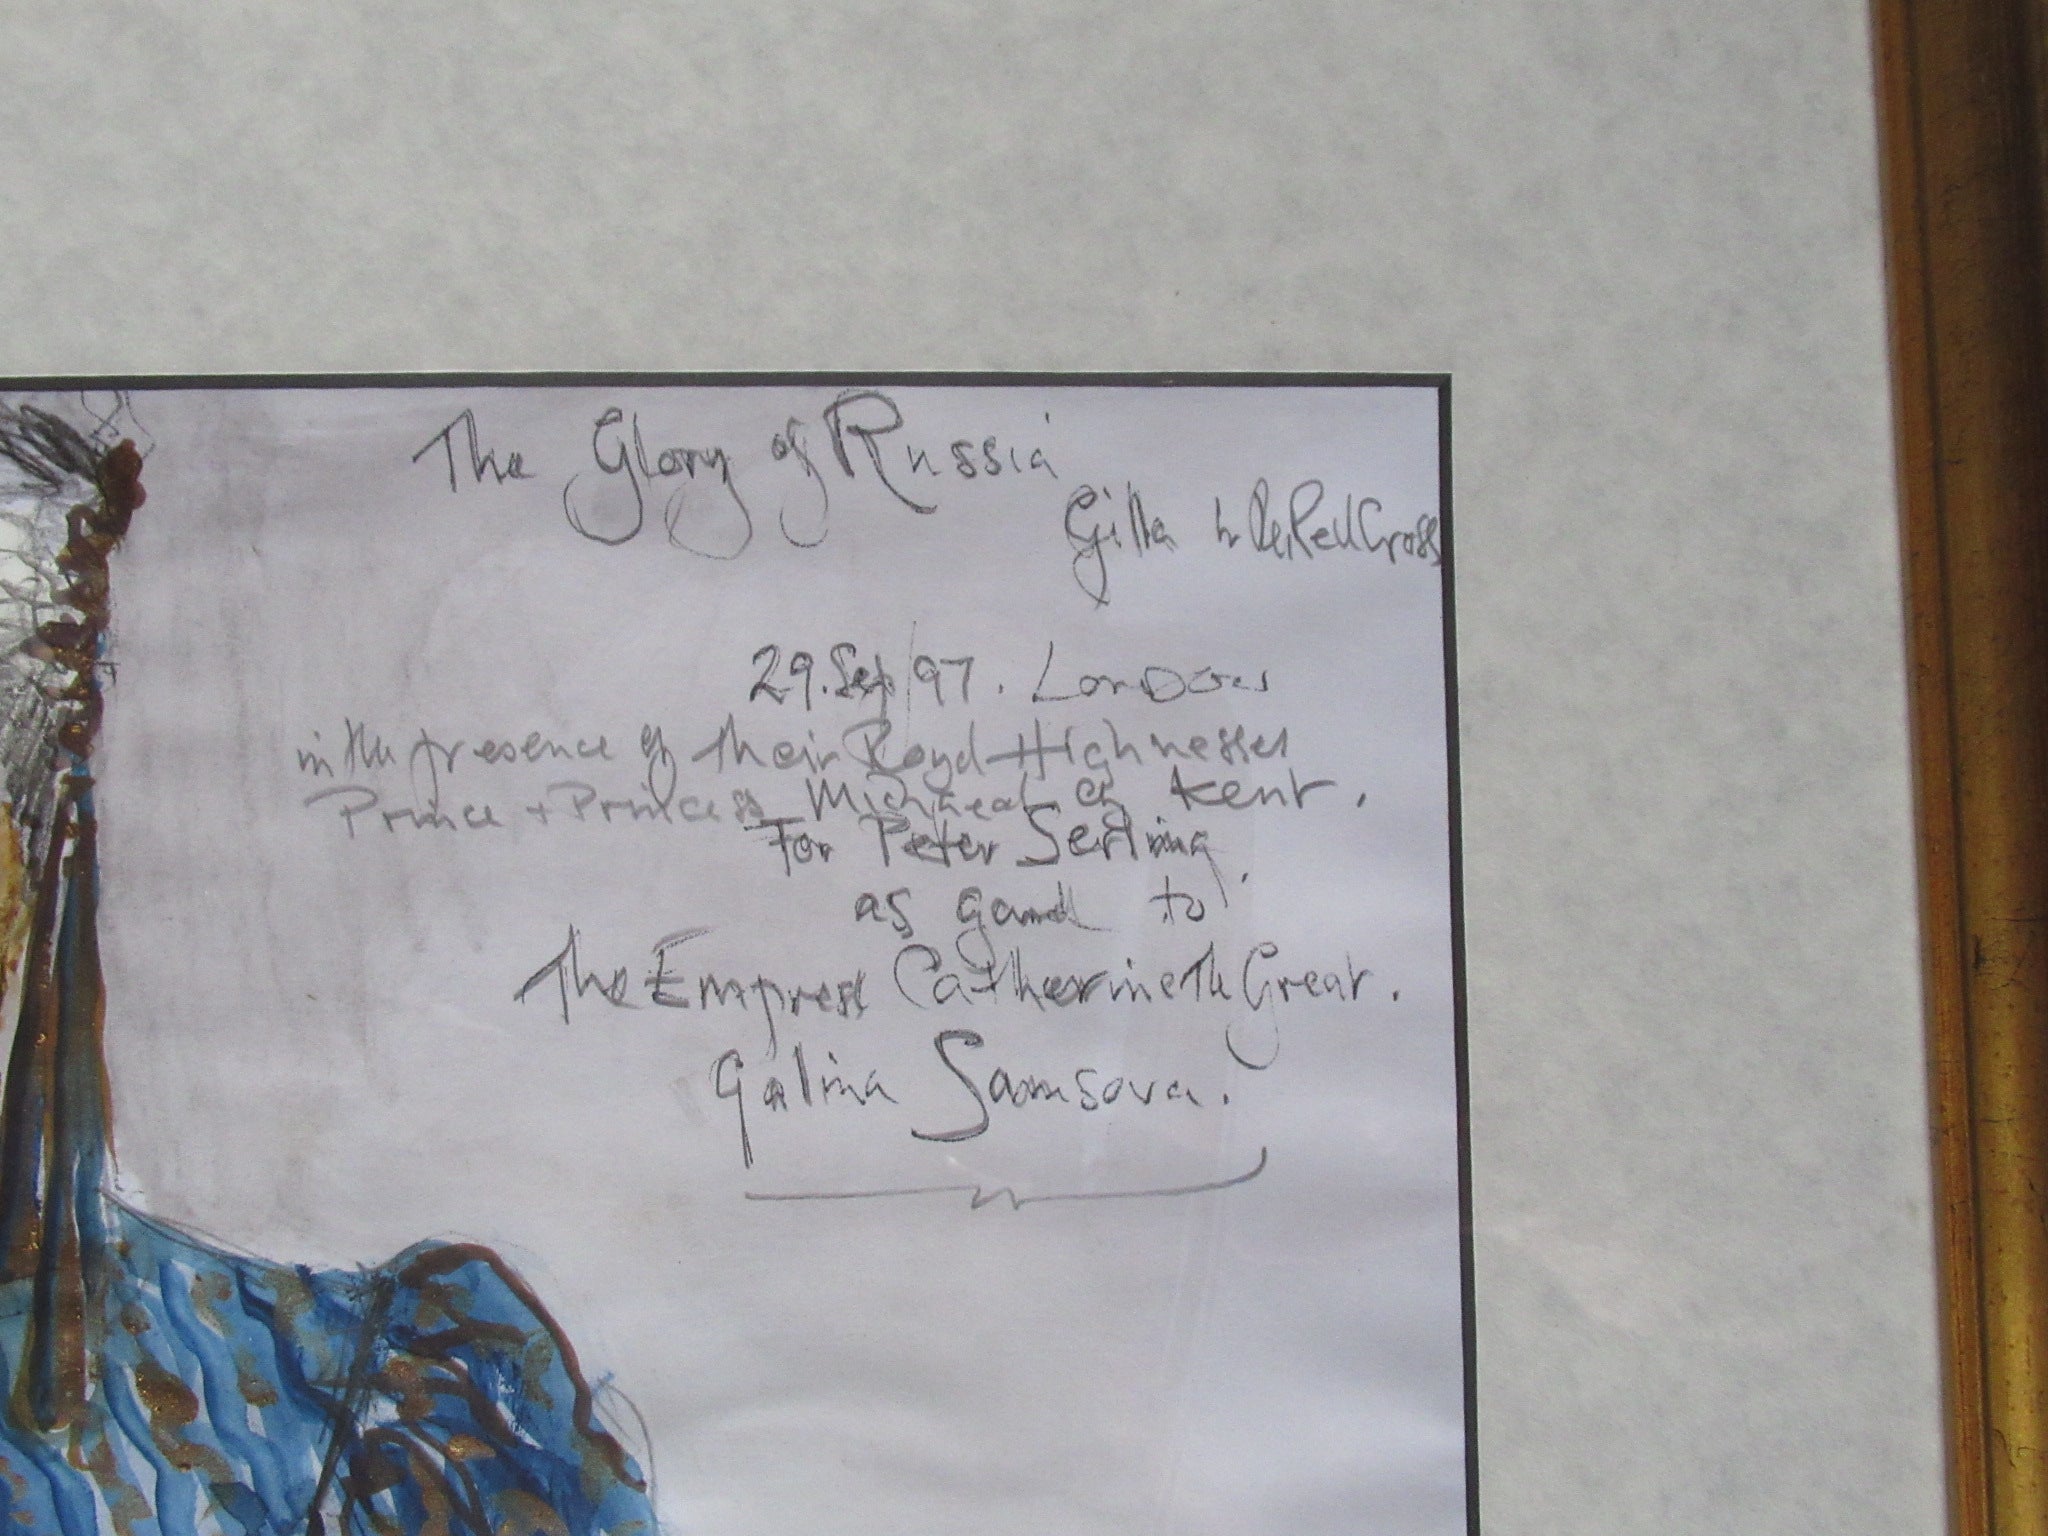 The Glory of Russia
Red Cross
29.Sep/97. London
in the presence of their Royal Highnesses
Prince + Princess Michael of Kent.
For Peter
as guard to
The Empress Catherine the Great.
Galina Samsova.